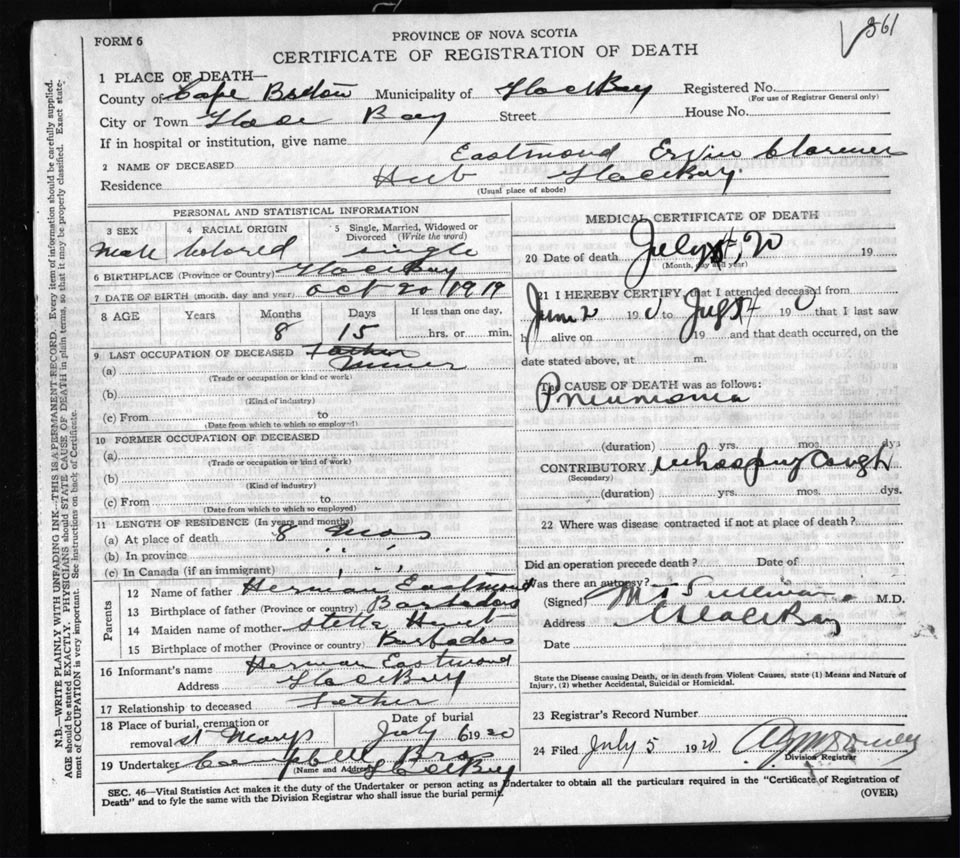 FORM 6
PROVINCE OF NOVA SCOTIA
CERTIFICATE OF REGISTRATION OF DEATH
361
1 PLACE OF DEATH—
County of Cape Breton Municipality of Glace Bay Registered No.
(For use of Registrar General only)
City or Town Glace Bay Street House No.
If in hospital or institution, give name
2 NAME OF DECEASED Eastmond Ervin Clarence
Residence Hub Glace Bay
(Usual place of abode)
PERSONAL AND STATISTICAL INFORMATION
3 SEX 4 RACIAL ORIGIN 5 Single, Married, Widowed or Divorced (Write the word)
Male Colored single
6 BIRTHPLACE (Province or Country) Glace Bay
7 DATE OF BIRTH (month, day and year) Oct 20/1919
8 AGE Years Months Days If less than one day,
8 15 hrs. or min.
9 LAST OCCUPATION OF DECEASED Father
(a) Miner
(Trade or occupation or kind of work)
(b)
(Kind of industry)
(c) From to
(Date from which to which so employed)
10 FORMER OCCUPATION OF DECEASED
(a)
(Trade or occupation or kind of work)
(b)
(Kind of industry)
(c) From to
(Date from which to which so employed)
11 LENGTH OF RESIDENCE (In years and months)
(a) At place of death 8 mos
(b) In province " "
(c) In Canada (if an immigrant) " "
Parents
12 Name of father Herman Eastmond
13 Birthplace of father (Province or country) Barbados
14 Maiden name of mother Stella
15 Birthplace of mother (Province or country) Barbados
16 Informant's name Herman Eastmond
Address Glace Bay
17 Relationship to deceased Father
18 Place of burial, cremation or removal St Marys Date of burial July 6 1920
19 Undertaker Campbell Bros
(Name and Address) Glace Bay
MEDICAL CERTIFICATE OF DEATH
20 Date of death July 20 19
(Month, day and year)
21 I HEREBY CERTIFY that I attended deceased from
June 2 190 to 190 that I last saw
h alive on 19 and that death occurred, on the
date stated above, at m.
The CAUSE OF DEATH was as follows:
Pneumonia
(duration) yrs. mos. dys
CONTRIBUTORY Whooping Cough
(Secondary)
(duration) yrs. mos. dys.
22 Where was disease contracted if not at place of death?
Did an operation precede death? Date of
Was there an autopsy?
(Signed) Sullivan M.D.
Address Glace Bay
Date
State the Disease causing Death, or in death from Violent Causes, state (1) Means and Nature of
Injury, (2) whether Accidental, Suicidal or Homicidal.
23 Registrar's Record Number
24 Filed July 5 1920
Division Registrar
SEC. 46—Vital Statistics Act makes it the duty of the Undertaker or person acting as Undertaker to obtain all the particulars required in the "Certificate of Registration of
Death" and to fyle the same with the Division Registrar who shall issue the burial permit.
(OVER)
N.B.—WRITE PLAINLY WITH UNFADING INK—THIS IS A PERMANENT RECORD. Every item of information should be carefully supplied.
AGE should be stated EXACTLY. PHYSICIANS should STATE CAUSE OF DEATH in plain terms, so that it may be properly classified. Exact state-
ment of OCCUPATION is very important. See instructions on back of Certificate.